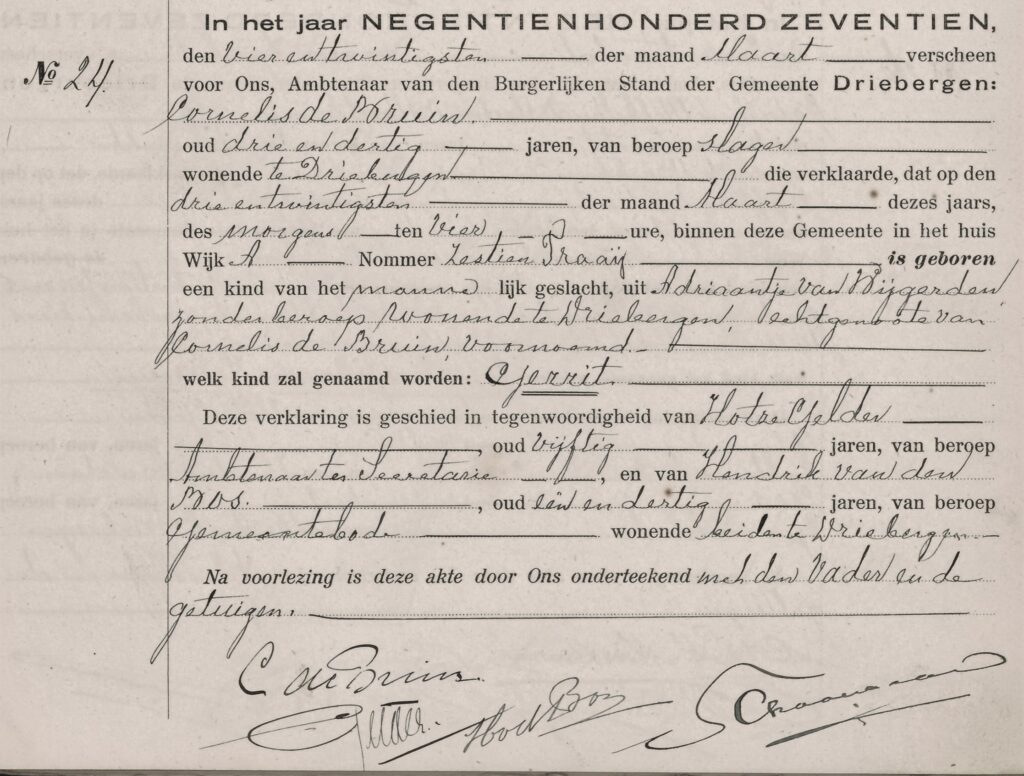 In het jaar NEGENTIENHONDERD ZEVENTIEN,
den vier en twintigsten der maand Maart verscheen
No 24.
voor Ons, Ambtenaar van den Burgerlijken Stand der Gemeente Driebergen:
Cornelis de Bruin.
oud drie en dertig jaren, van beroep slager
wonende te Driebergen die verklaarde, dat op den
drie entwintigsten der maand Maart dezes jaars,
des morgens ten vier ure, binnen deze Gemeente in het huis
Wijk A Nommer Zestien Traaij is geboren
een kind van het manne lijk geslacht, uit Adriaantje van Wijgerden,
zonder beroep wonende te Driebergen, echtgenoote van
Cornelis de Bruin, voornoemd.
welk kind zal genaamd worden: Gerrit.
Deze verklaring is geschied in tegenwoordigheid van Hotze Gelder
, oud vijftig jaren, van beroep
Ambtenaar ter Secretarie , en van Hendrik van den
Bos. , oud een en dertig jaren, van beroep
Gemeentebode wonende beiden te Driebergen
Na voorlezing is deze akte door Ons onderteekend met den Vader en de
getuigen.
C de Bruin.
Gelder.
HvdBos